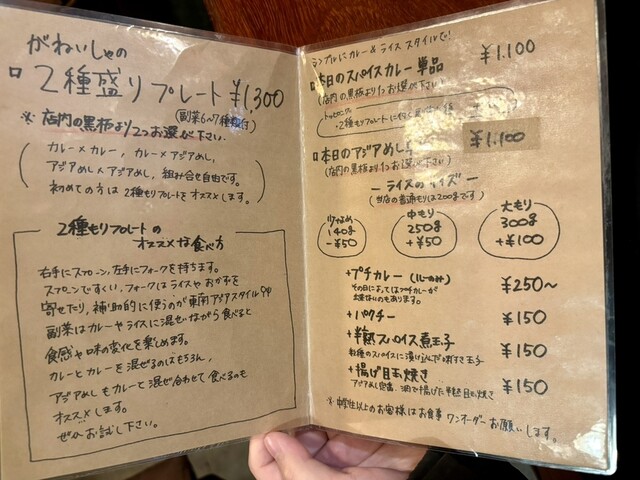 がねいしゃの
2種盛りプレート ¥1,300
(副菜6〜7種類付)
※店内の黒板より2つお選び下さい.
カレー×カレー, カレー×アジアめし,
アジアめし×アジアめし, 組み合せ自由です。
初めての方は2種もりプレートをオススメします。
2種もりプレートの
オススメな食べ方
右手にスプーン, 左手にフォークを持ちます。
スプーンですくい, フォークはライスやおかずを
寄せたり, 補助的に使うのが東南アジアスタイル
副菜はカレーやライスに混ぜながら食べると
食感や味の変化を楽しめます。
カレーとカレーを混ぜるのはもちろん,
アジアめしもカレーと混ぜ合わせて食べるのも
オススメします。
ぜひお試し下さい。
シンプルにカレー&ライススタイルで!
本日のスパイスカレー単品 ¥1.100
(店内の黒板より1つお選び下さい)
トッピングに
本日のアジアめし ¥1.100
(店内の黒板より1つお選び下さい)
ーライスのサイズー
(当店の普通もりは200gです)
少なめ
140g
-¥50
中もり
250g
+¥50
大もり
300g
+¥100
+プチカレー (ルーのみ) ¥250〜
その日によってはプチカレーが
出来ないものもあります。
+パクチー ¥150
+半熟スパイス煮玉子 ¥150
お種のスパイスに漬け込んだ味すき玉子
+揚げ目玉焼き ¥150
アジアめし定番, 油で揚げた半熟目玉焼き
※中学生以上のお客様はお食事ワンオーダーお願いします。